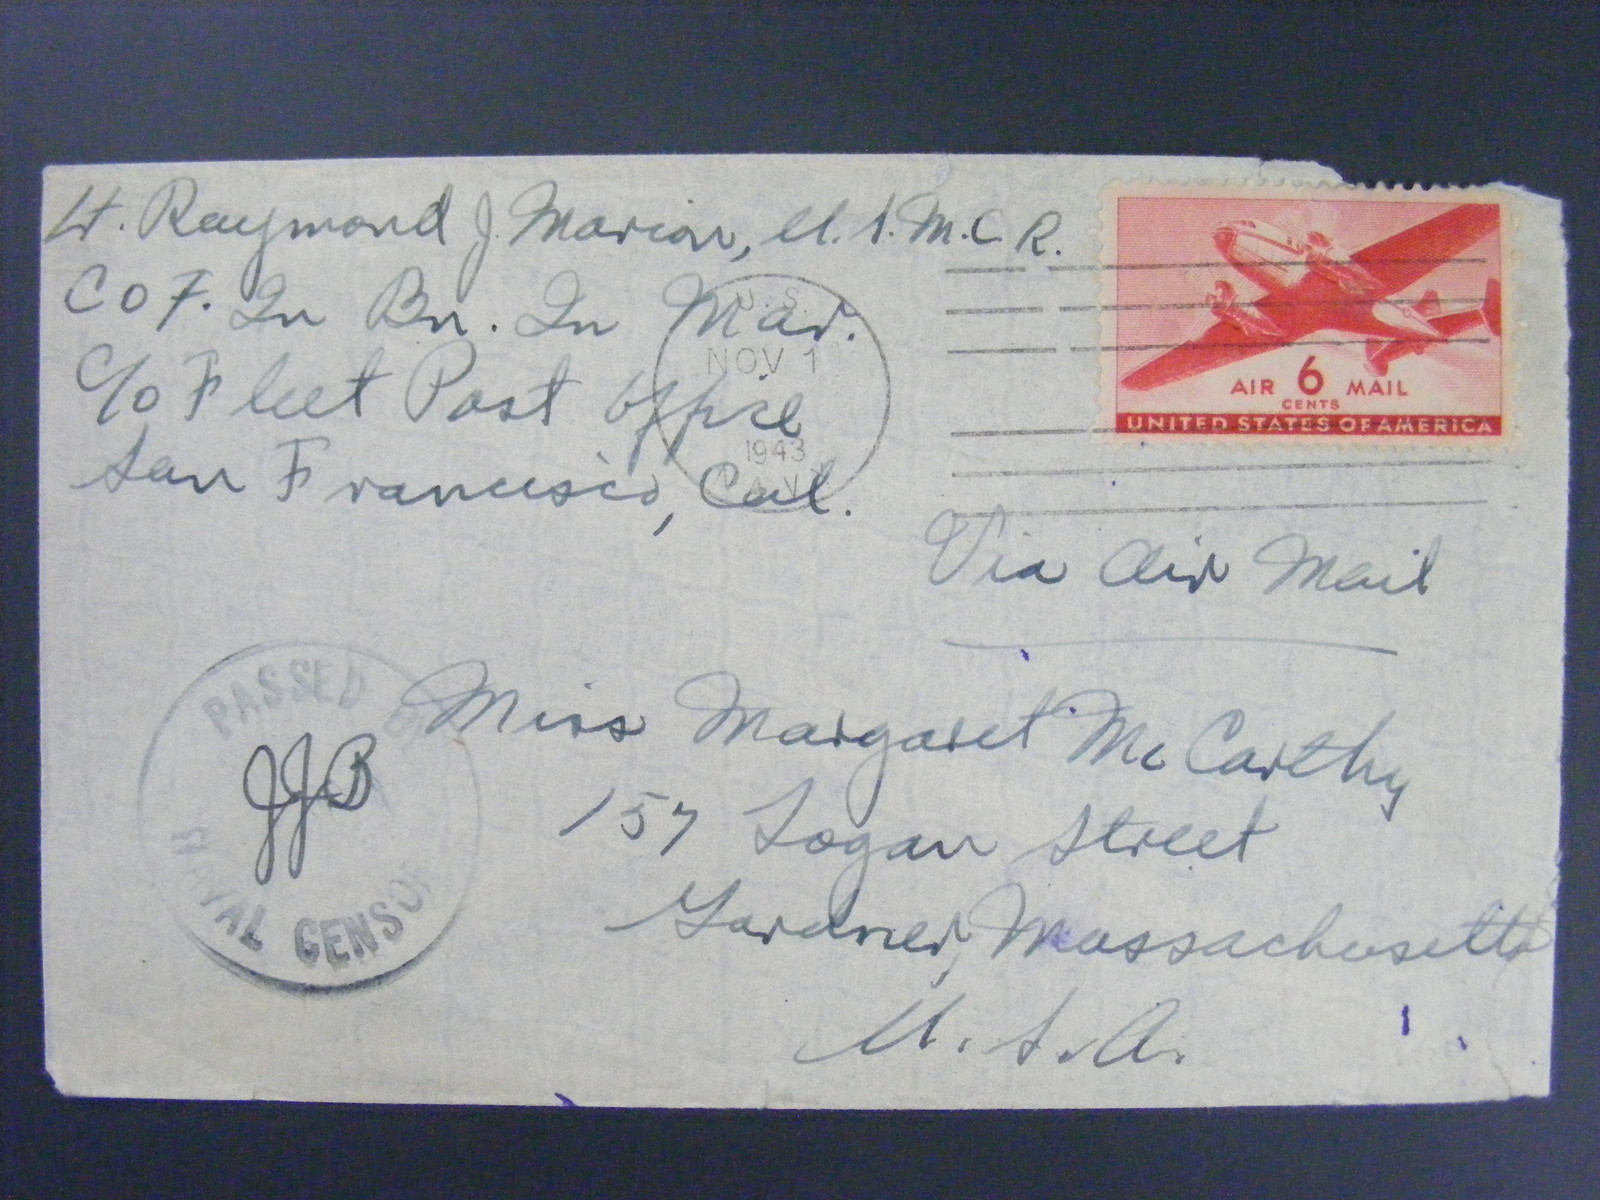 Lt. Raymond J. Marion, U.S.M.C.R.
Co F. 2n Bn. 2n Mar.
c/o Fleet Post Office
San Francisco, Cal.
U.S.
NOV 1
1943
NAVY
AIR 6 MAIL
CENTS
UNITED STATES OF AMERICA
Via Air Mail
PASSED BY
JJB
NAVAL CENSOR
Miss Margaret McCarthy
157 Logan Street
Gardner, Massachusetts
U.S.A.